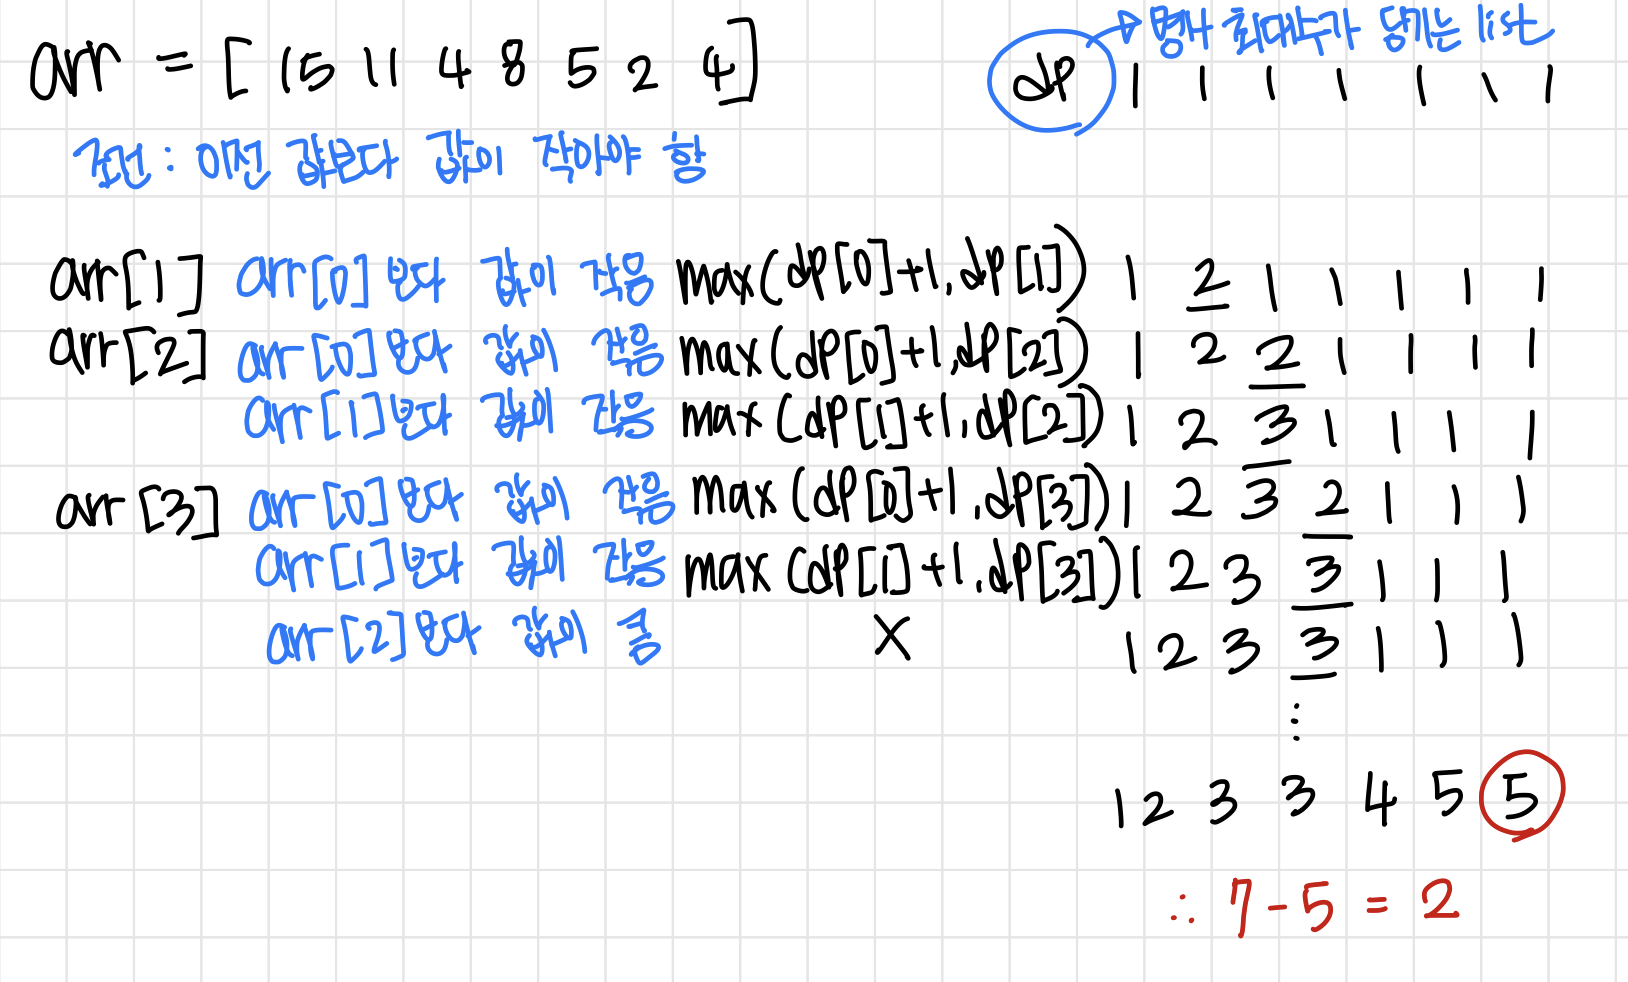 arr = [ 15 11 4 8 5 2 4]
dp → 병사 최대수가 담기는 list
1 1 1 1 1 1 1
조건 : 이전 값보다 값이 작아야 함
arr[1] arr[0] 보다 값이 작음 max(dp[0]+1, dp[1]) 1 2 1 1 1 1 1
arr[2] arr[0] 보다 값이 작음 max(dp[0]+1, dp[2]) 1 2 2 1 1 1 1
arr[1] 보다 값이 작음 max(dp[1]+1, dp[2]) 1 2 3 1 1 1 1
arr[3] arr[0] 보다 값이 작음 max(dp[0]+1, dp[3]) 1 2 3 2 1 1 1
arr[1] 보다 값이 작음 max(dp[1]+1, dp[3]) 1 2 3 3 1 1 1
arr[2] 보다 값이 큼 X 1 2 3 3 1 1 1
⋮
1 2 3 3 4 5 5
∴ 7-5 = 2